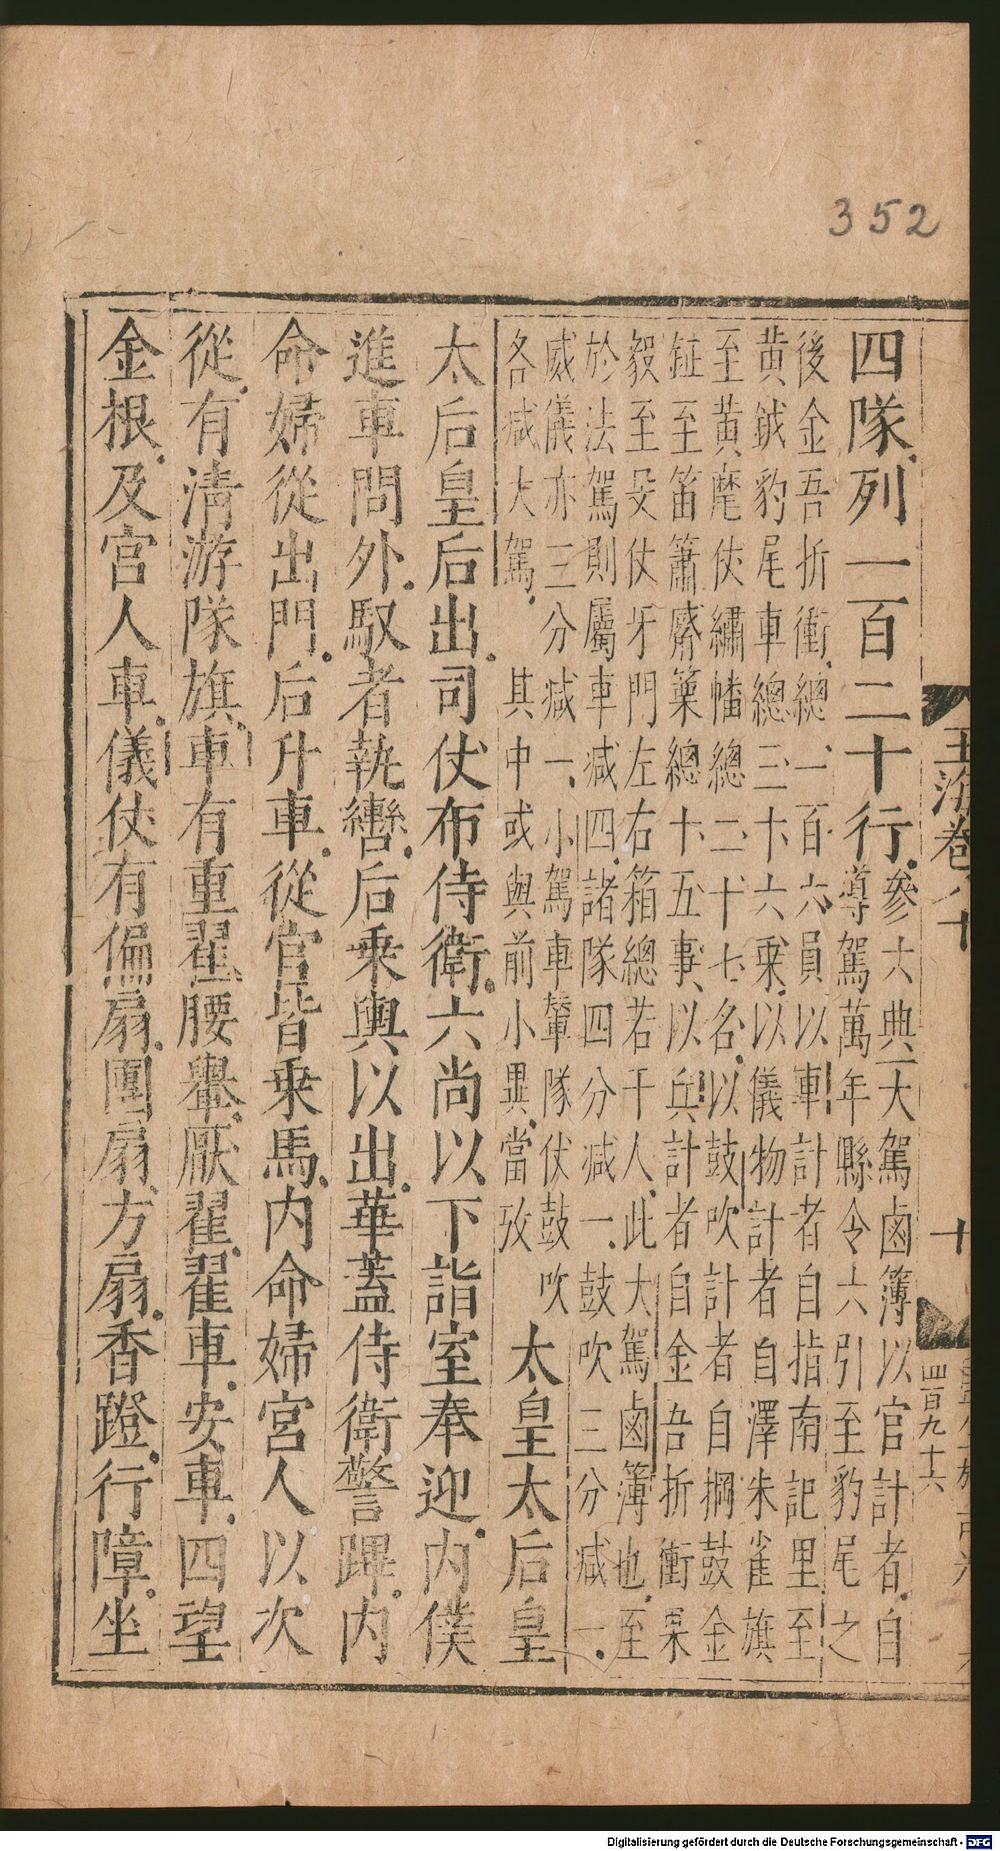 352
玉海卷八十
十
四百九十六
四隊列一百二十行參六典大駕鹵簿以官計者自
導駕萬年縣令六引至豹尾之
後金吾折衝總一百六員以車計者自指南記里至
黄鉞豹尾車總三十六乘以儀物計者自澤朱雀旗
至黄麾仗繡幡總二十七名以鼓吹計者自掆鼓金
鉦至笛簫觱篥總十五事以兵計者自金吾折衝果
毅至殳仗牙門左右箱總若干人此大駕鹵簿也至
於法駕則屬車減四諸隊四分減一鼓吹三分減一
威儀亦三分減一小駕車輦隊仗鼓吹
各減大駕其中或與前小異當攷
太皇太后皇
太后皇后出司仗布侍衛六尚以下詣室奉迎内僕
進車問外馭者執轡后乗輿以出華蓋侍衛警蹕内
命婦從出門后升車從官皆乗馬内命婦宮人以次
從有清游隊旗車有重翟腰轝厭翟翟車安車四望
金根及宫人車儀仗有偏扇團扇方扇香蹬行障坐
Digitalisierung gefördert durch die Deutsche Forschungsgemeinschaft - DFG